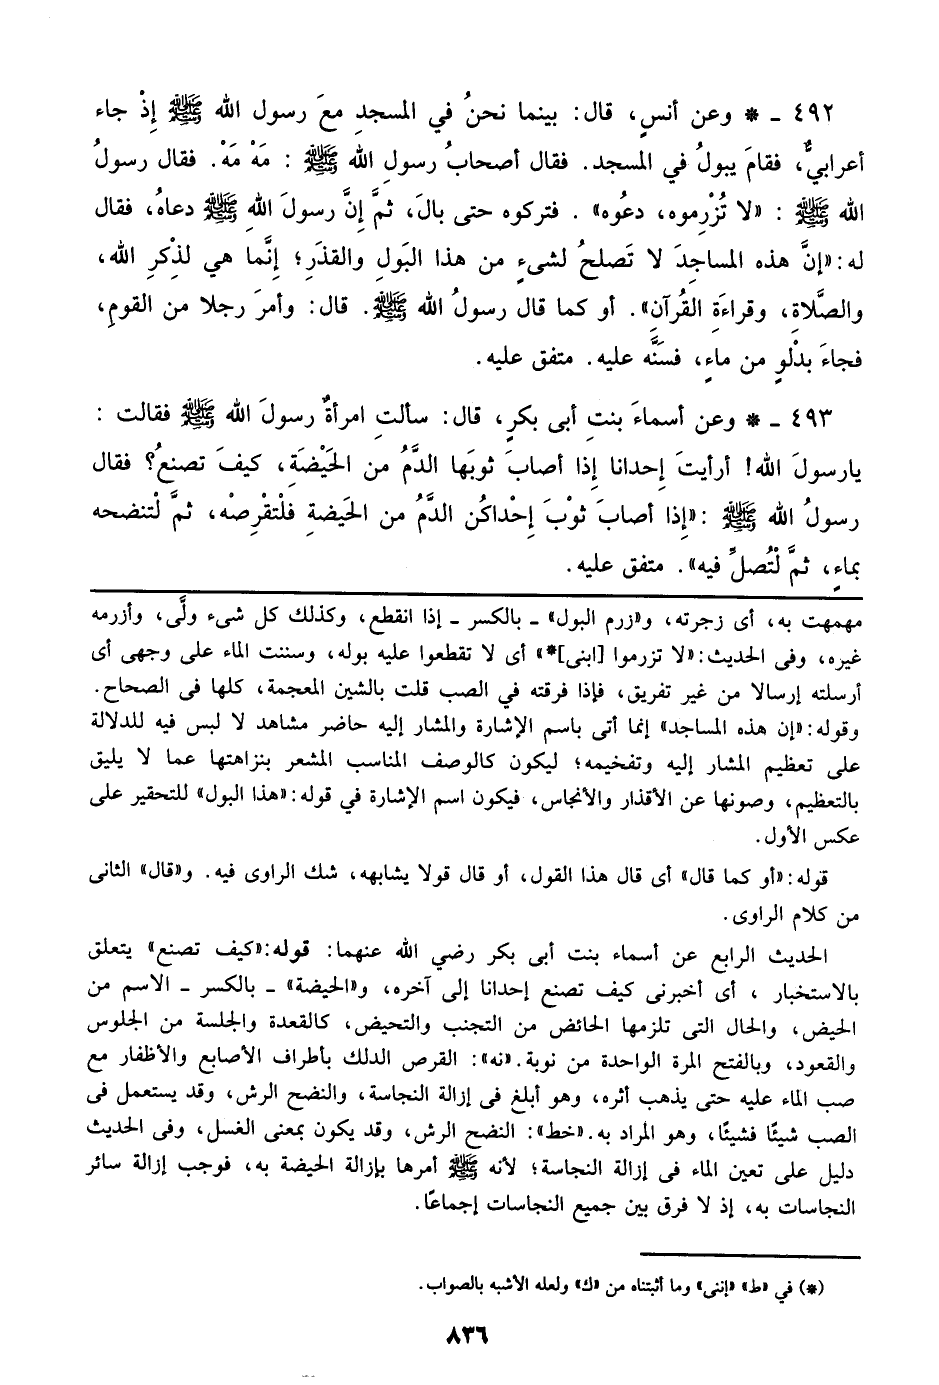 ٤٩٢ ـ * وعن أنسٍ، قال: بينما نحنُ في المسجدِ معَ رسول الله ﷺ إِذْ جاء
أعرابيٌّ، فقامَ يبولُ في المسجد. فقال أصحابُ رسولِ الله ﷺ : مَهْ مَهْ. فقال رسولُ
الله ﷺ : «لا تُزْرِموه، دعُوه» . فتركوه حتى بالَ، ثمَّ إنَّ رسولَ اللهِ ﷺ دعاهُ، فقال
له:«إنَّ هذه المساجِدَ لا تَصلحُ لشىءٍ من هذا البَولِ والقذَرِ؛ إنَّما هي لذْكِرِ الله،
والصَّلاةِ، وقراءَةِ القُرآنِ». أو كما قال رسولُ الله ﷺ. قال: وأمرَ رجلا من القومِ،
فجاءَ بدْلوٍ من ماءٍ، فسَنَّه عليه. متفق عليه.
٤٩٣ ـ * وعن أسماءَ بنتِ أبى بكرٍ، قال: سألتِ امرأةٌ رسولَ الله ﷺ فقالت :
يارسولَ الله! أرأيتَ إحدانا إذا أصابَ ثوبَها الدَّمُ من الحَيْضَةِ، كيفَ تصنعُ؟ فقال
رسولُ الله ﷺ :«إذا أصابَ ثوْبَ إحْداكُن الدَّمُ من الحَيضةِ فلْتقْرِصْه، ثمَّ لْتنضحه
بماءٍ، ثمَّ لْتُصلِّ فيه». متفق عليه.
مهمهت به، أى زجرته، و«زرم البول» ـ بالكسر ـ إذا انقطع، وكذلك كل شىء ولَّى، وأزرمه
غيره، وفى الحديث:«لا تزرموا [ابنى]*» أى لا تقطعوا عليه بوله، وسننت الماء على وجهى أى
أرسلته إرسالا من غير تفريق، فإذا فرقته في الصب قلت بالشين المعجمة، كلها فى الصحاح.
وقوله:«إن هذه المساجد» إنما أتى باسم الإشارة والمشار إليه حاضر مشاهد لا لبس فيه للدلالة
على تعظيم المشار إليه وتفخيمه؛ ليكون كالوصف المناسب المشعر بنزاهتها عما لا يليق
بالتعظيم، وصونها عن الأقذار والأنجاس، فيكون اسم الإشارة في قوله:«هذا البول» للتحقير على
عكس الأول.
قوله:«أو كما قال» أى قال هذا القول، أو قال قولا يشابهه، شك الراوى فيه. و«قال» الثانى
من كلام الراوى.
الحديث الرابع عن أسماء بنت أبى بكر رضي الله عنهما: قوله:«كيف تصنع» يتعلق
بالاستخبار ، أى أخبرنى كيف تصنع إحدانا إلى آخره، و«الحيضة» ـ بالكسر ـ الاسم من
الحيض، والحال التى تلزمها الحائض من التجنب والتحيض، كالقعدة والجلسة من الجلوس
والقعود، وبالفتح المرة الواحدة من نوبة.«نه»: القرص الدلك بأطراف الأصابع والأظفار مع
صب الماء عليه حتى يذهب أثره، وهو أبلغ فى إزالة النجاسة، والنضح الرش، وقد يستعمل فى
الصب شيئًا فشيئًا، وهو المراد به.«خط»: النضح الرش، وقد يكون بمعنى الغسل، وفى الحديث
دليل على تعين الماء فى إزالة النجاسة؛ لأنه ﷺ أمرها بإزالة الحيضة به، فوجب إزالة سائر
النجاسات به، إذ لا فرق بين جميع النجاسات إجماعًا.
(*) في «ط» «إننى» وما أثبتناه من «ك» ولعله الأشبه بالصواب.
٨٣٦